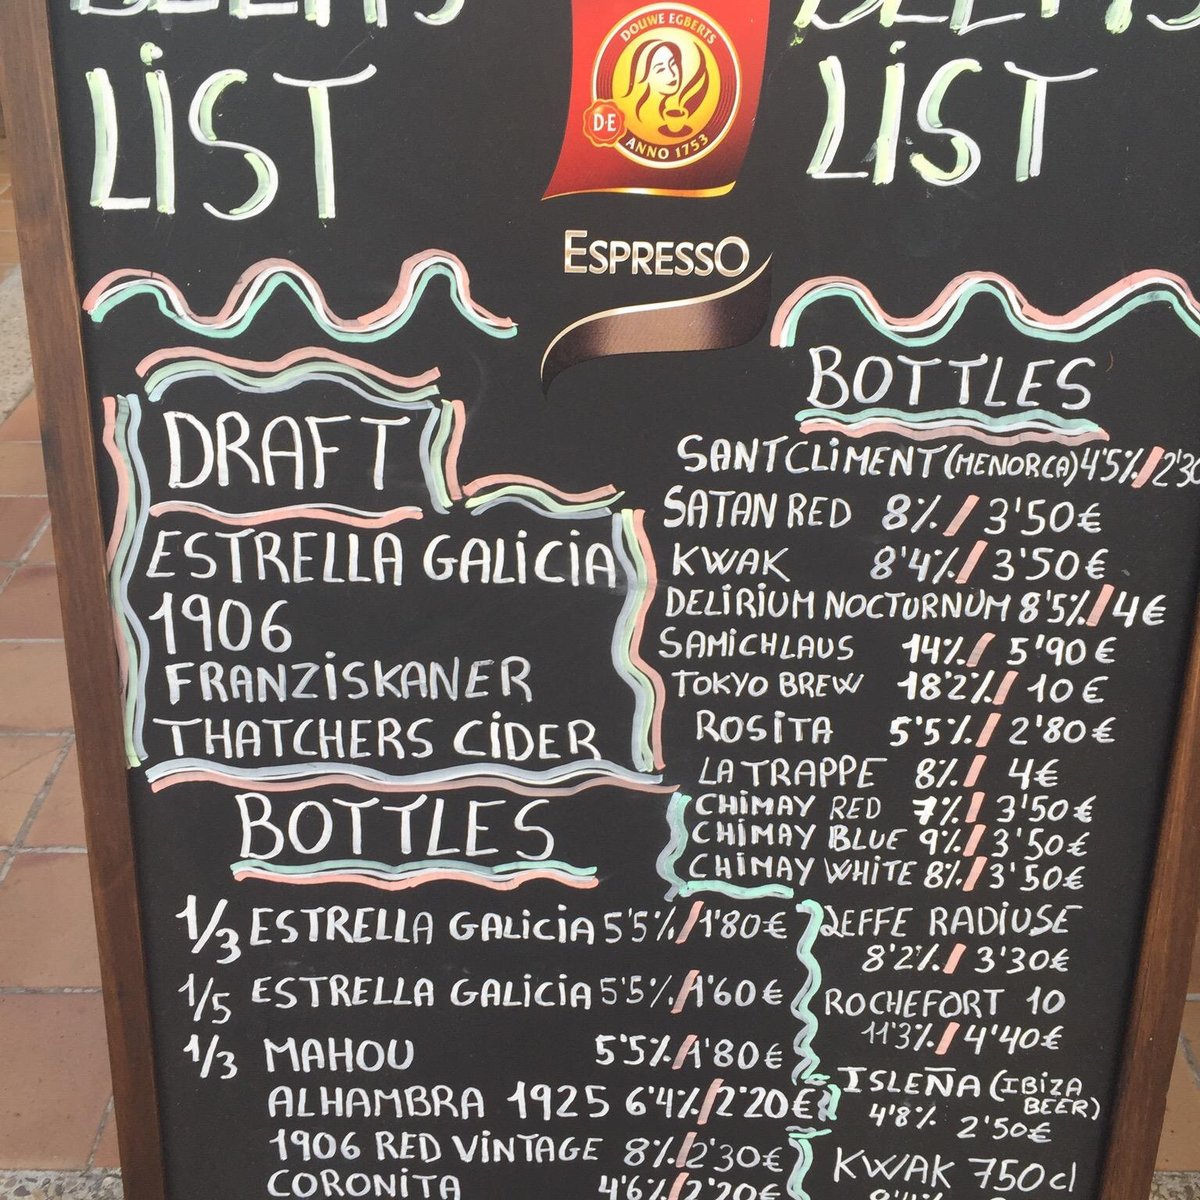 BEERS
LIST
DOUWE EGBERTS
D·E
ANNO 1753
ESPRESSO
BEERS
LIST
DRAFT
ESTRELLA GALICIA
1906
FRANZISKANER
THATCHERS CIDER
BOTTLES
1/3 ESTRELLA GALICIA 5'5%/1'80€
1/5 ESTRELLA GALICIA 5'5%/1'60€
1/3 MAHOU 5'5%/1'80€
ALHAMBRA 1925 6'4%/2'20€
1906 RED VINTAGE 8%/2'30€
CORONITA 4'6%/2'20€
BOTTLES
SANT CLIMENT (MENORCA) 4'5%/2'30
SATAN RED 8%/3'50€
KWAK 8'4%/3'50€
DELIRIUM NOCTURNUM 8'5%/4€
SAMICHLAUS 14%/5'90€
TOKYO BREW 18'2%/10€
ROSITA 5'5%/2'80€
LA TRAPPE 8%/4€
CHIMAY RED 7%/3'50€
CHIMAY BLUE 9%/3'50€
CHIMAY WHITE 8%/3'50€
LEFFE RADIUSE
8'2%/3'30€
ROCHEFORT 10
11'3%/4'40€
ISLEÑA (IBIZA
BEER)
4'8% 2'50€
KWAK 750cl